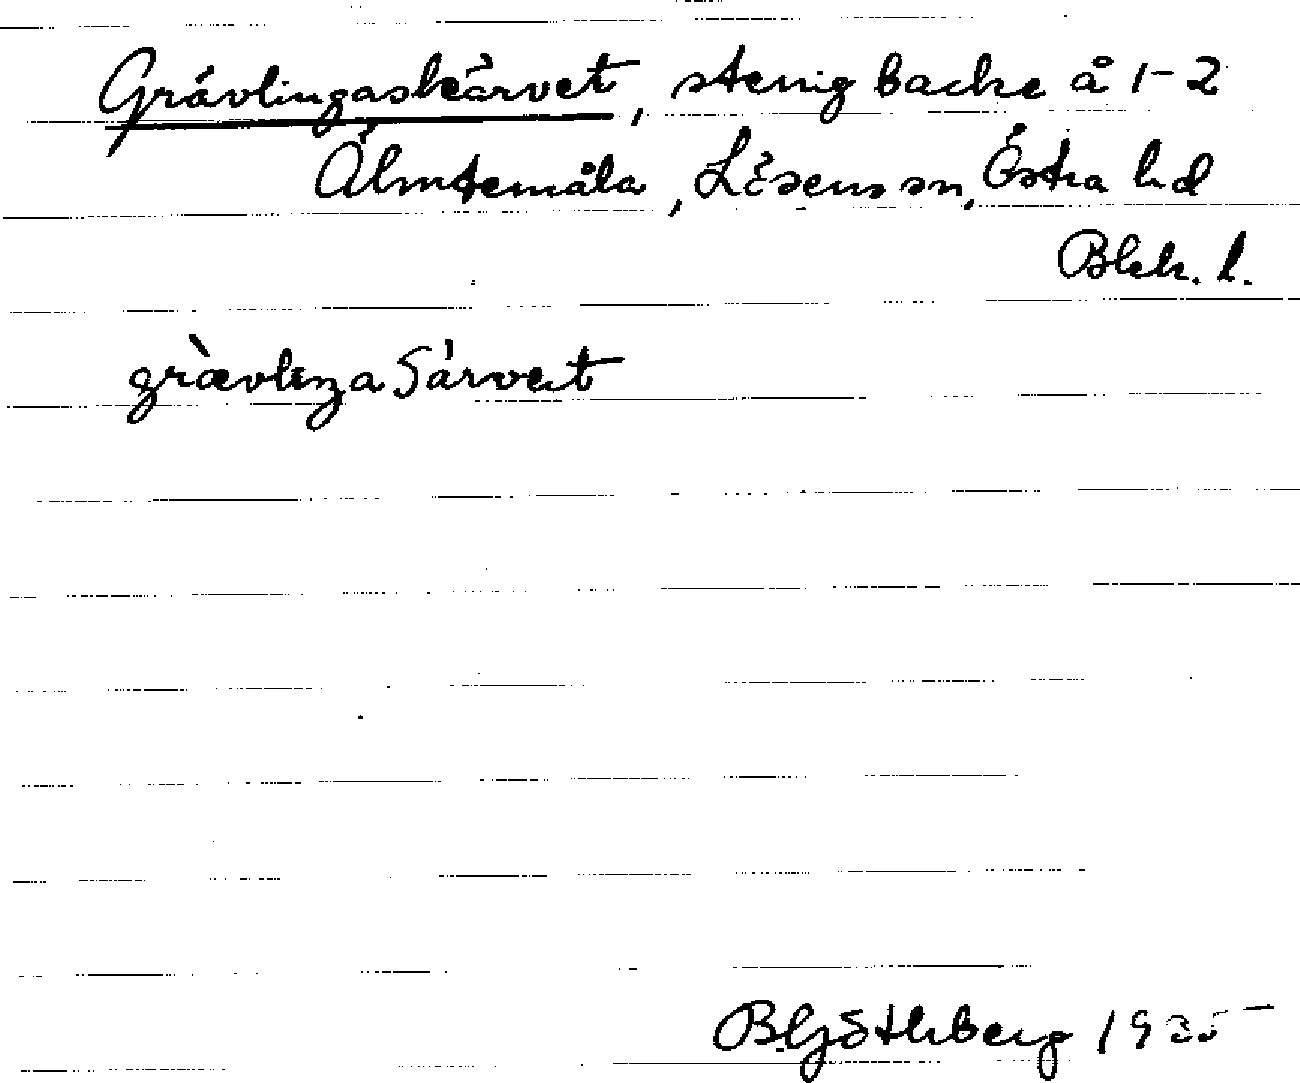 Grävlingaskärvet, stenig backe å 1-2
Älmtemåla, Lösens sn, Östra hd
Blek. l.
grævleŋa Sárvet
B Göthberg 1935